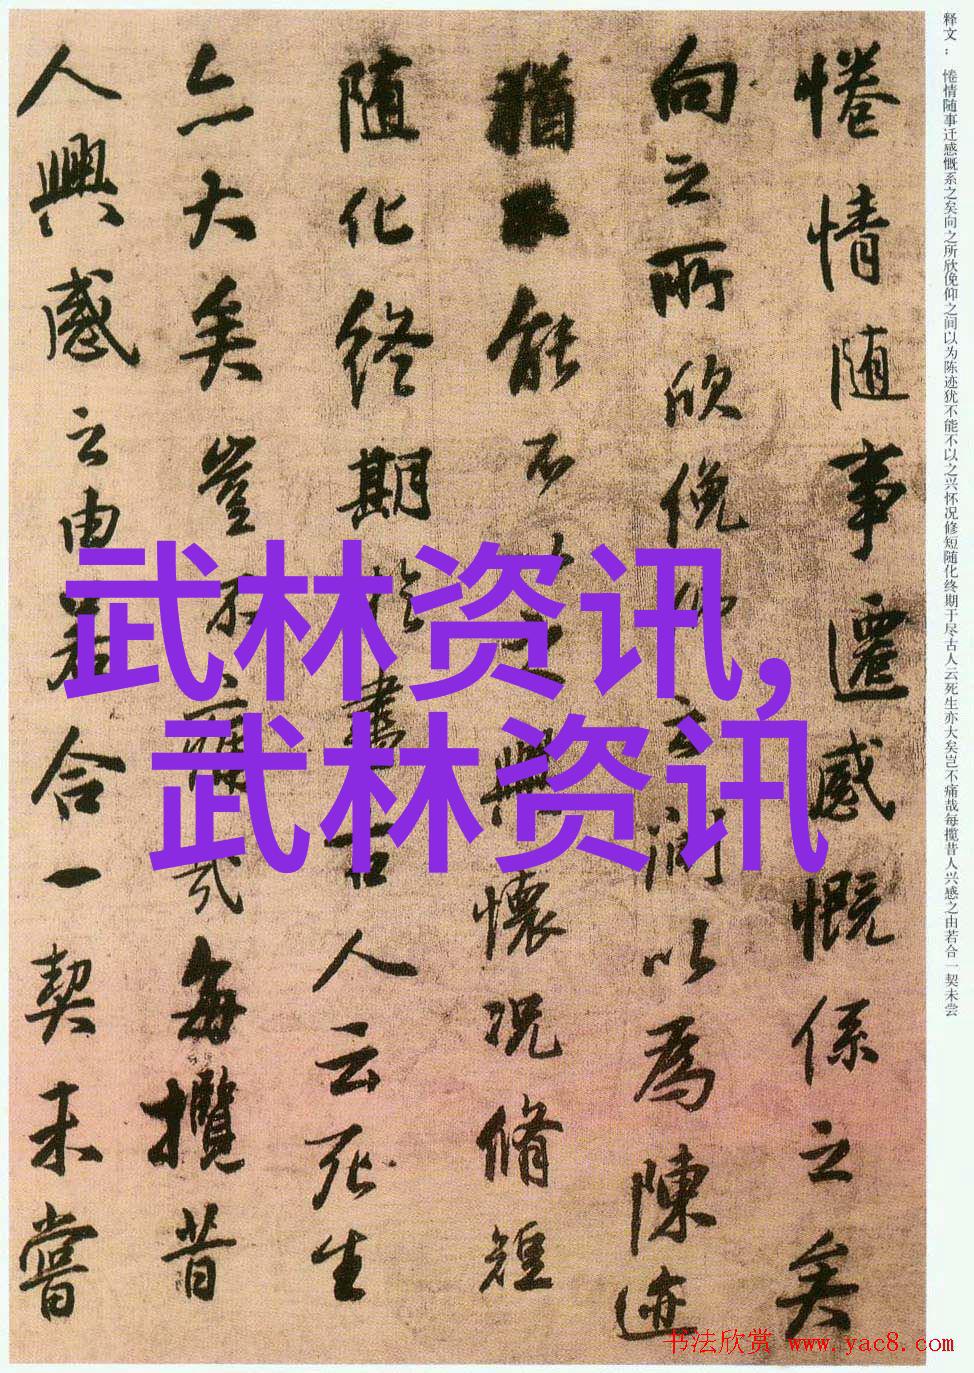 释文： 惓情随事迁感慨系之矣向之所欣俛仰之间以为陈迹犹不能不以之兴怀况修短随化终期于尽古人云死生亦大矣岂不痛哉每揽昔人兴感之由若合一契未尝
惓情随事遷感慨係之矣
向之所欣俛仰之間以為陳迹
猶不能不以之興懷況脩短
随化終期於盡古人云死生
亦大矣豈不痛哉每攬昔
人興感之由若合一契未嘗
武林资讯,
武林资讯
书法欣赏 www.yac8.com